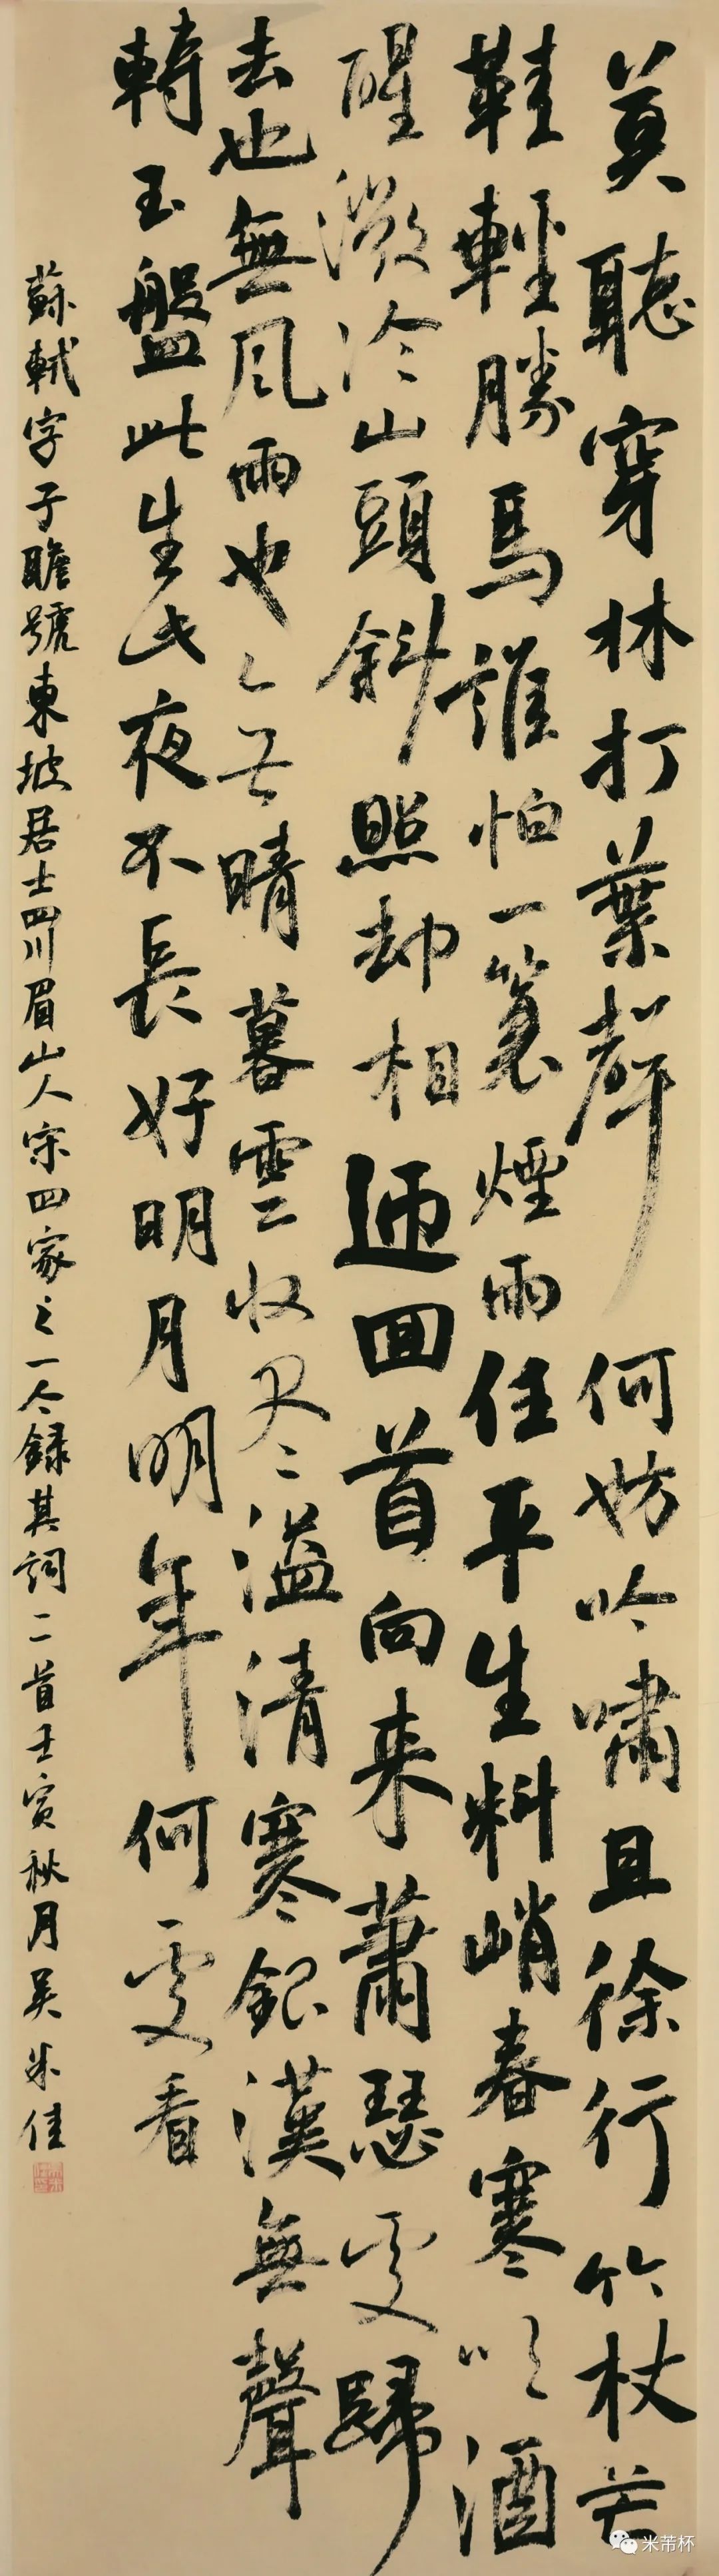 莫聽穿林打葉聲何妨吟嘯且徐行竹杖芒
鞋輕勝馬誰怕一蓑煙雨任平生料峭春寒吹酒
醒微冷山頭斜照却相迎回首向来蕭瑟處歸
去也無風雨也无晴暮雲收尽溢清寒銀漢無聲
轉玉盤此生此夜不長好明月明年何處看
蘇軾字子瞻號東坡居士四川眉山人宋四家之一今録其詞二首壬寅秋月吴朱佳
米芾杯